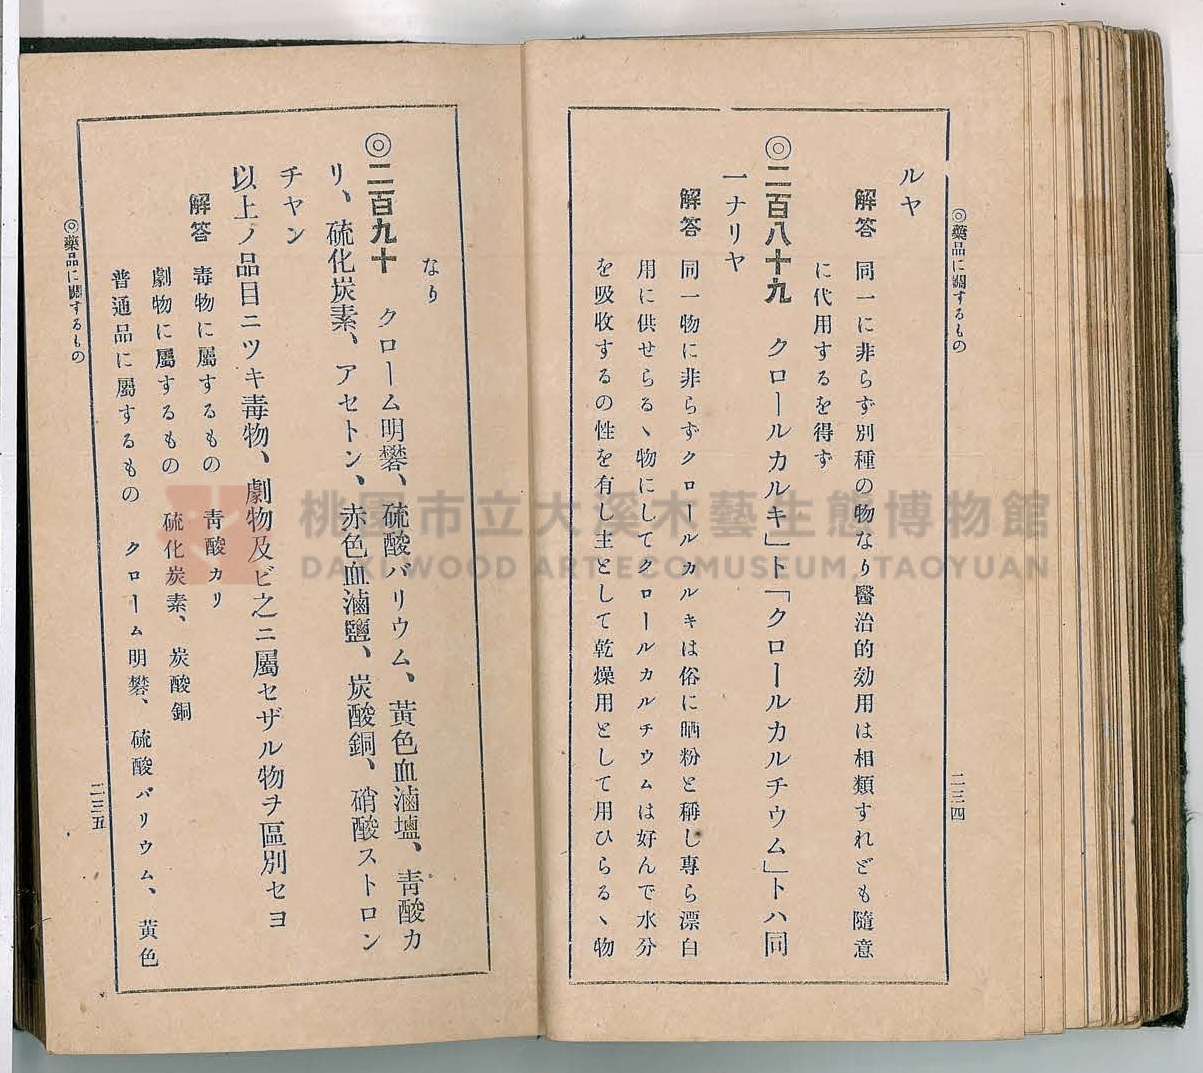 ◎藥品に關するもの
二三四
ルヤ
解答 同一に非らず別種の物なり醫治的効用は相類すれども隨意
に代用するを得ず
◎二百八十九 クロールカルキ」ト「クロールカルチウム」トハ同
一ナリヤ
解答 同一物に非らずクロールカルキは俗に晒粉と稱し專ら漂白
用に供せらるヽ物にしてクロールカルチウムは好んで水分
を吸收するの性を有し主として乾燥用として用ひらるヽ物
なり
◎二百九十 クローム明礬、硫酸バリウム、黃色血滷塩、靑酸カ
リ、硫化炭素、アセトン、赤色血滷鹽、炭酸銅、硝酸ストロン
チヤン
以上ノ品目ニツキ毒物、劇物及ビ之ニ屬セザル物ヲ區別セヨ
解答 毒物に屬するもの 靑酸カリ
劇物に屬するもの 硫化炭素、炭酸銅
普通品に屬するもの クローム明礬、硫酸バリウム、黃色
◎藥品に關するもの
二三五
桃園市立大溪木藝生態博物館
DAXI WOOD ART ECOMUSEUM, TAOYUAN